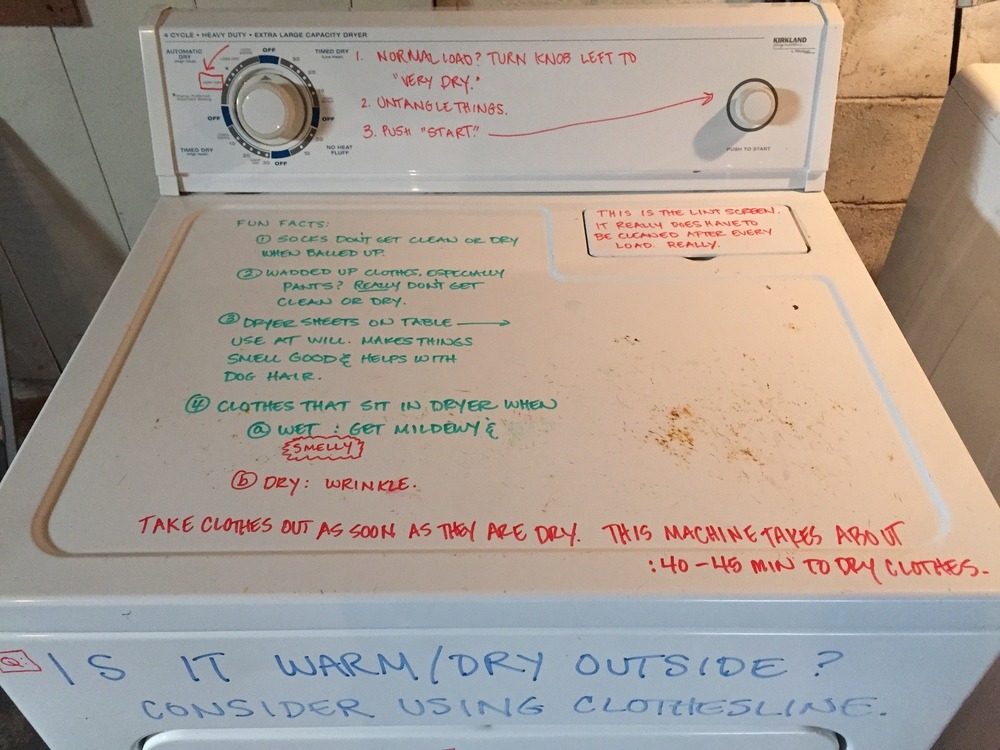 4 CYCLE • HEAVY DUTY • EXTRA LARGE CAPACITY DRYER
KIRKLAND
AUTOMATIC
DRY
OFF
TIMED DRY
OFF
OFF
TIMED DRY
OFF
NO HEAT
FLUFF
PUSH TO START
1. NORMAL LOAD? TURN KNOB LEFT TO
"VERY DRY."
2. UNTANGLE THINGS.
3. PUSH "START."
THIS IS THE LINT SCREEN.
IT REALLY DOES HAVE TO
BE CLEANED AFTER EVERY
LOAD. REALLY.
FUN FACTS:
① SOCKS DON'T GET CLEAN OR DRY
WHEN BALLED UP.
② WADDED UP CLOTHES, ESPECIALLY
PANTS? REALLY DON'T GET
CLEAN OR DRY.
③ DRYER SHEETS ON TABLE →
USE AT WILL. MAKES THINGS
SMELL GOOD & HELPS WITH
DOG HAIR.
④ CLOTHES THAT SIT IN DRYER WHEN
ⓐ WET : GET MILDEWY &
SMELLY
ⓑ DRY: WRINKLE.
TAKE CLOTHES OUT AS SOON AS THEY ARE DRY. THIS MACHINE TAKES ABOUT
:40 - 45 MIN TO DRY CLOTHES.
Q: IS IT WARM/DRY OUTSIDE?
CONSIDER USING CLOTHESLINE.